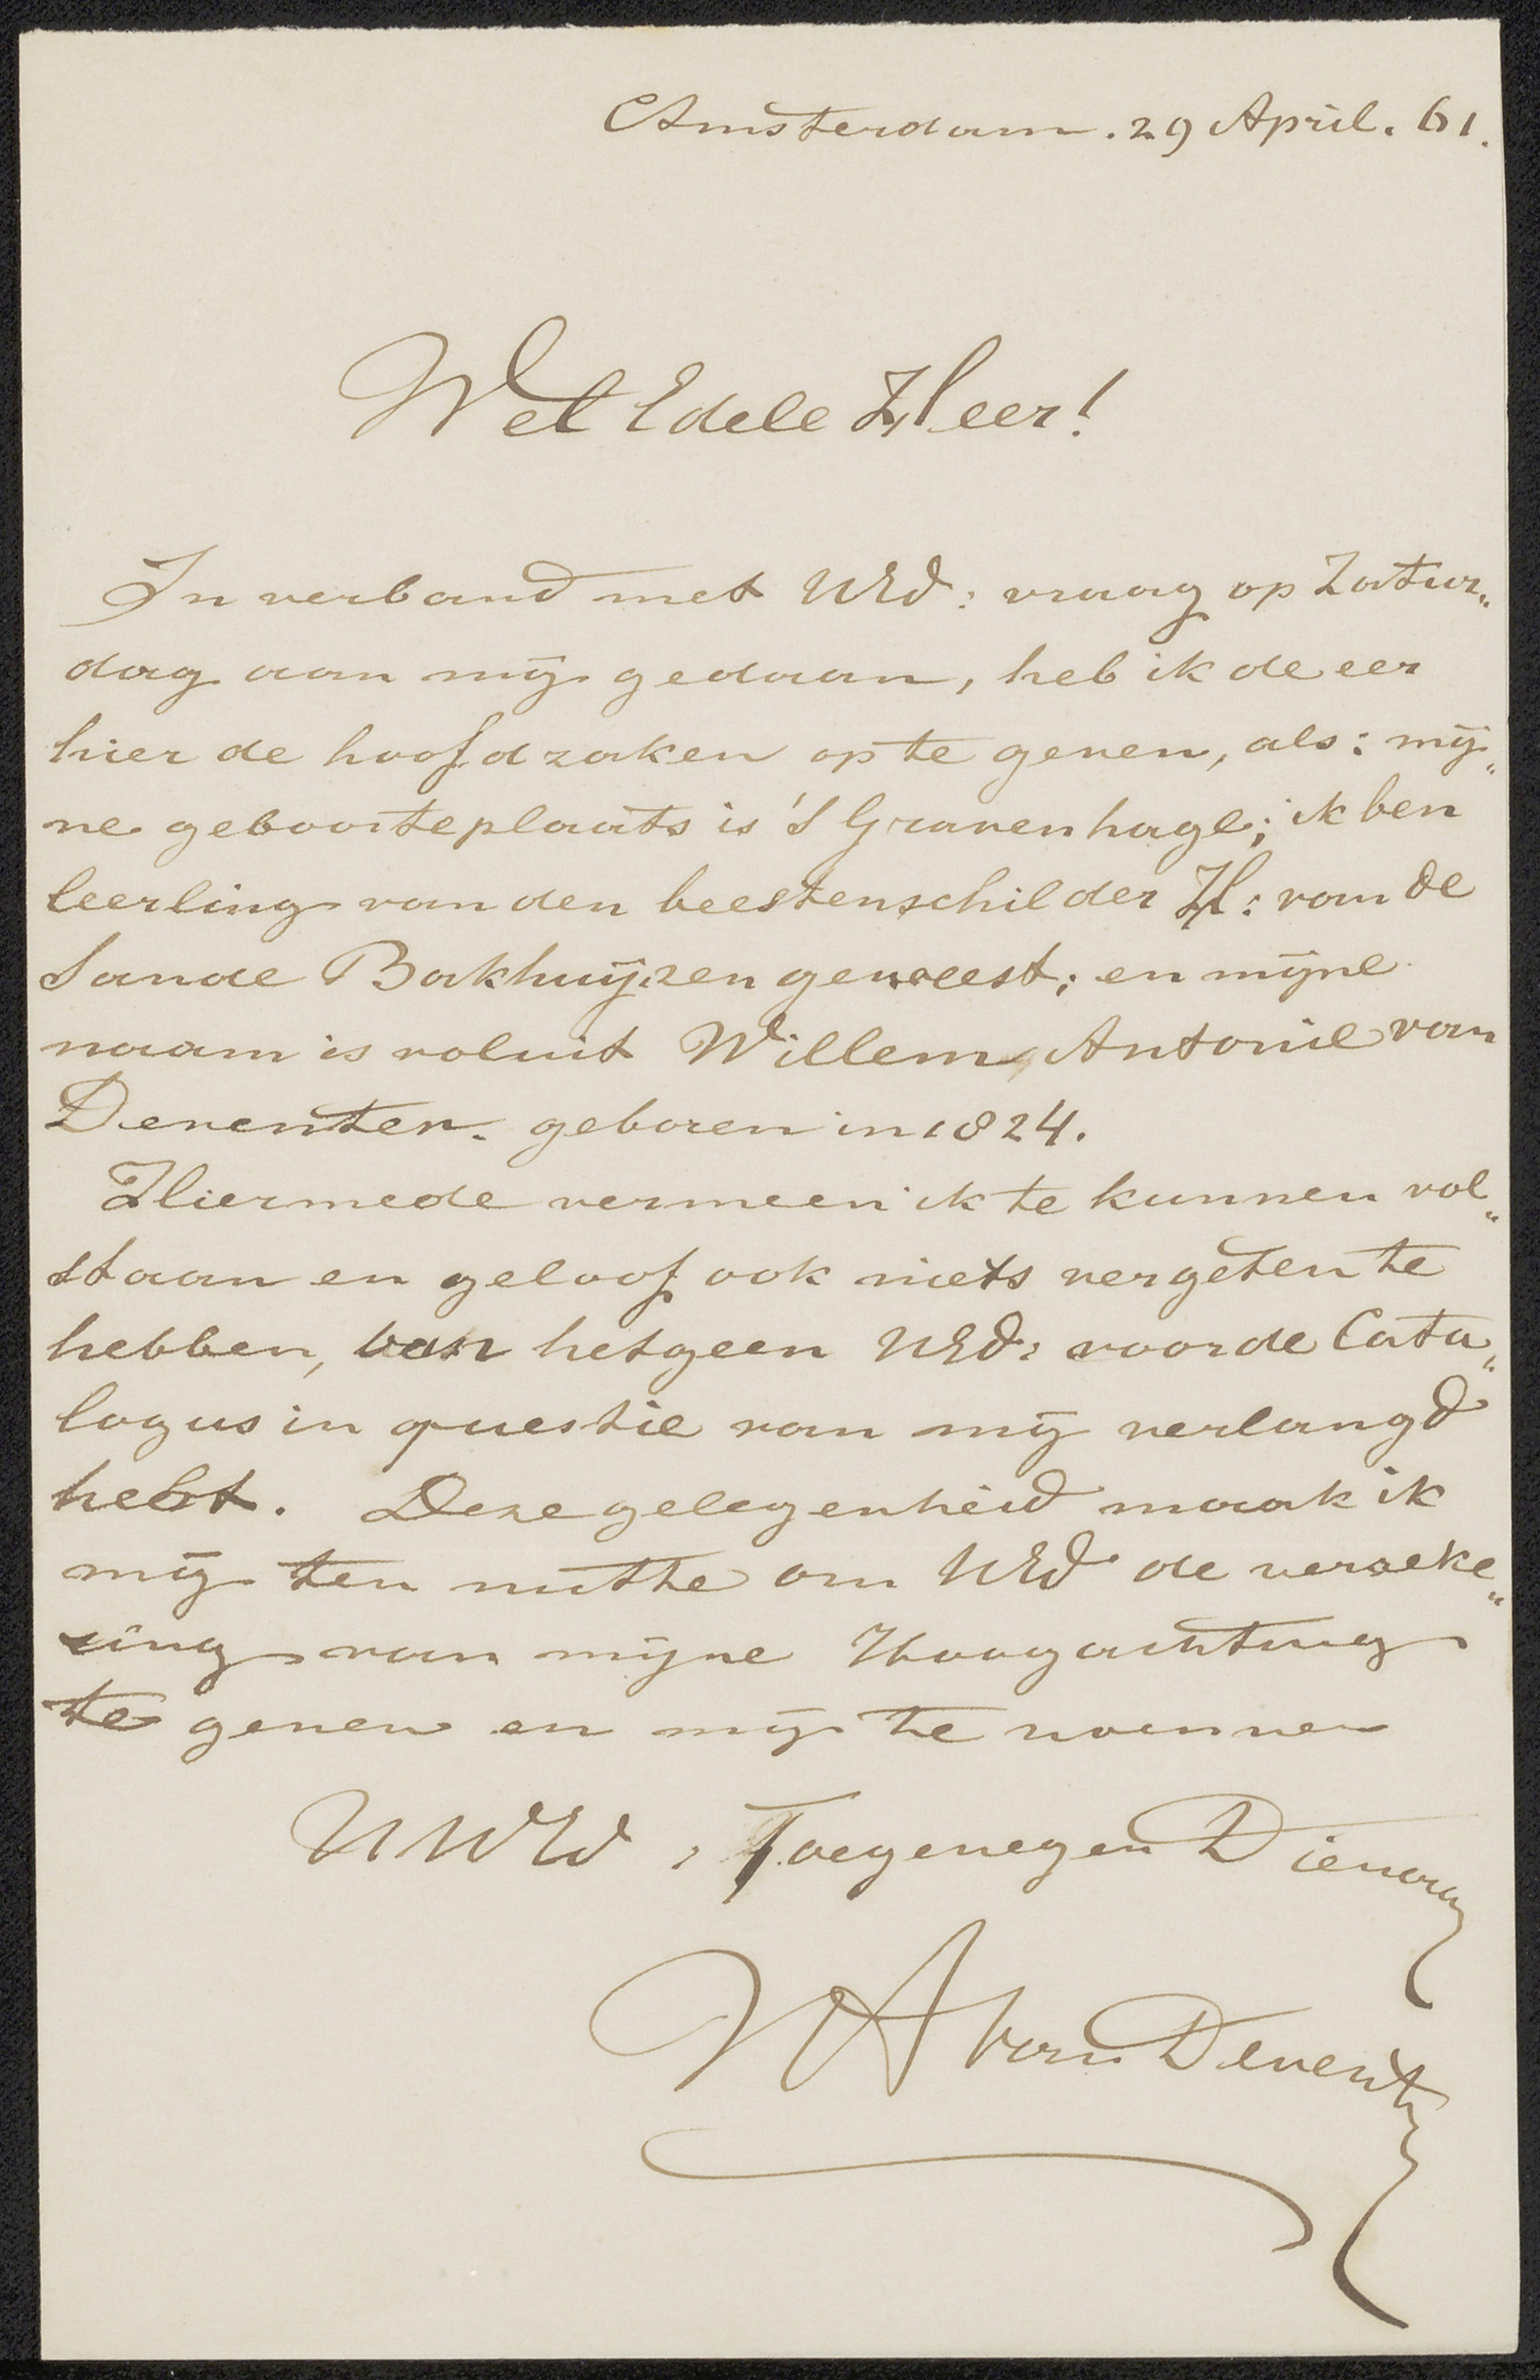 Amsterdam. 29 April. 61.
Wel Edele Heer!
In verband met UEd: vraag op Zatur„
dag aan mij gedaan, heb ik de eer
hier de hoofdzaken op te geven, als: mij„
ne geboorteplaats is 's Gravenhage; ik ben
leerling van den beestenschilder H: van de
Sande Bakhuijzen geweest; en mijne
naam is voluit Willem, Antonie van
Deventer. geboren in 1824.
Hiermede vermeen ik te kunnen vol„
staan en geloof ook niets vergeten te
hebben, van hetgeen UEd: voor de Cata„
logus in questie van mij verlangd
hebt. Deze gelegenheid maak ik
mij ten nutte om UEd de verzeke„
ring van mijne Hoogachting
te geven en mij te noemen
UWEd: Toegenegen Dienaar
WA van Deventer